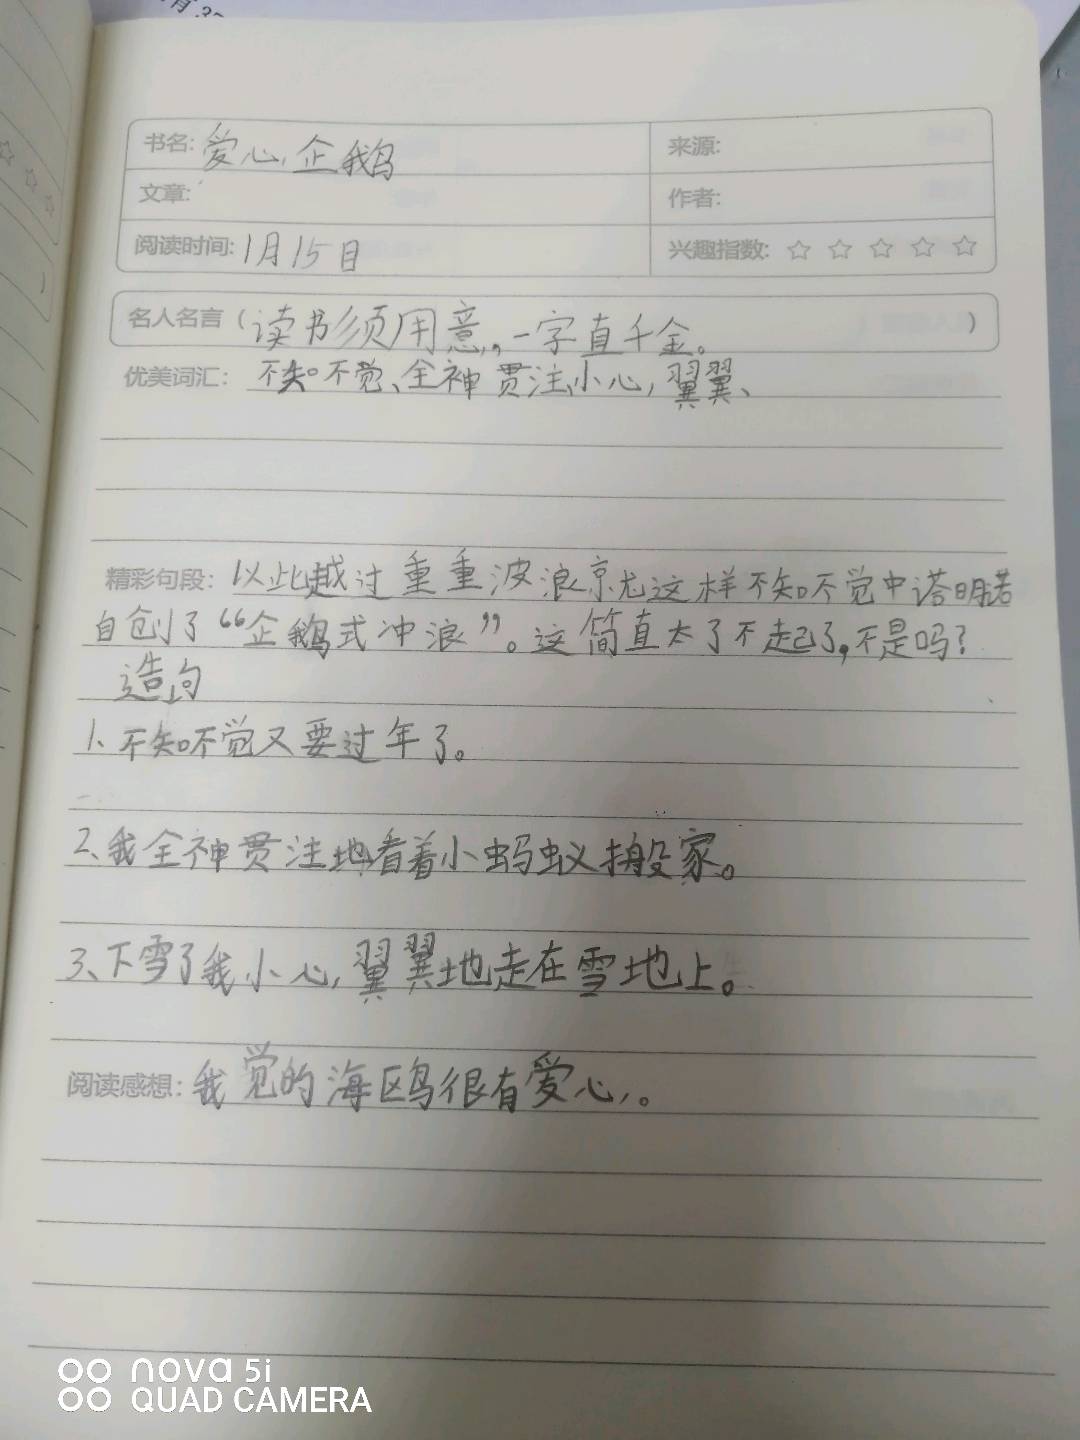 书名: 爱心企鹅 来源:
文章: 作者:
阅读时间: 1月15日 兴趣指数: ☆ ☆ ☆ ☆ ☆
名人名言（读书须用意,一字直千金。）
优美词汇: 不知不觉、全神贯注、小心翼翼、
精彩句段: 以此越过重重波浪京尤这样不知不觉中塔明诺
自创了“企鹅式冲浪”。这简直太了不起了,不是吗?
造句
1、不知不觉又要过年了。
2、我全神贯注地看着小蚂蚁搬家。
3、下雪了我小心翼翼地走在雪地上。
阅读感想: 我觉的海鸥很有爱心。
nova 5i
QUAD CAMERA